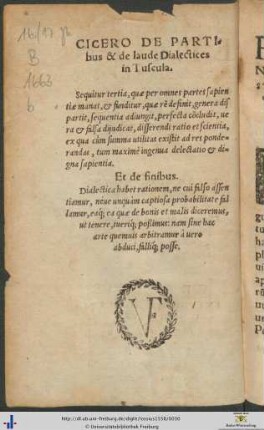 CICERO DE PARTI-
bus & de laude Dialectices
in Tuscula.
Sequitur tertia, quæ per omnes partes sapien
tiæ manat, & funditur, quæ rē definit, genera dis
partit, sequentia adiungit, perfecta cōcludit, ue
ra & falsa diiudicat, disserendi ratio et scientia,
ex qua cùm summa utilitas existit ad res ponde-
randas, tum maximè ingenua delectatio & di-
gna sapientia.
Et de finibus.
Dialectica habet rationem, ne cui falso assen
tiamur, néue unquàm captiosa probabilitate fal
lamur, eaq́; ea quæ de bonis et malis diceremus,
ut tenere, tueriq́; possimus: nam sine hac
arte quemuis arbitramur à uero
abduci, falliq́; posse.
VF
© Universitätsbibliothek Freiburg